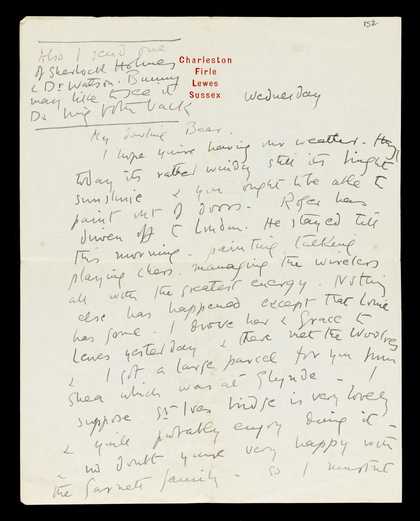 152
Also I send one
of Sherlock Holmes
& Dr Watson. Bunny
may like to see it
Do bring both back
Charleston
Firle
Lewes
Sussex
Wednesday
My Bear.
I hope you're having our weather.
today its rather windy still its bright
sunshine & you ought to be able to
paint out of doors. Roger has
driven off to London. He stayed till
this morning. painting talking
playing chess. managing the wireless
all with the greatest energy. Nothing
else has happened except that Louie
has gone. I drove her & Grace to
Lewes yesterday & there met the Woolves
& I got a large parcel for you from
Shea which was at Glynde - I
suppose St Ives bridge is very lovely
& you'll probably enjoy doing it -
& no doubt you're very happy with
the Garnett family - so I mustnt